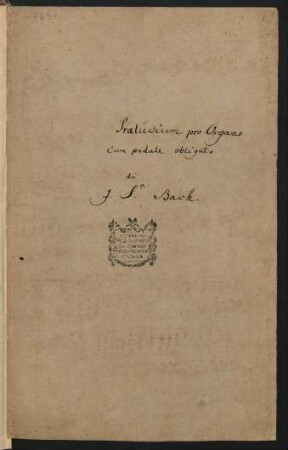 Præludium pro Organo
Cum pedale obligato
di
J. S. Bach.